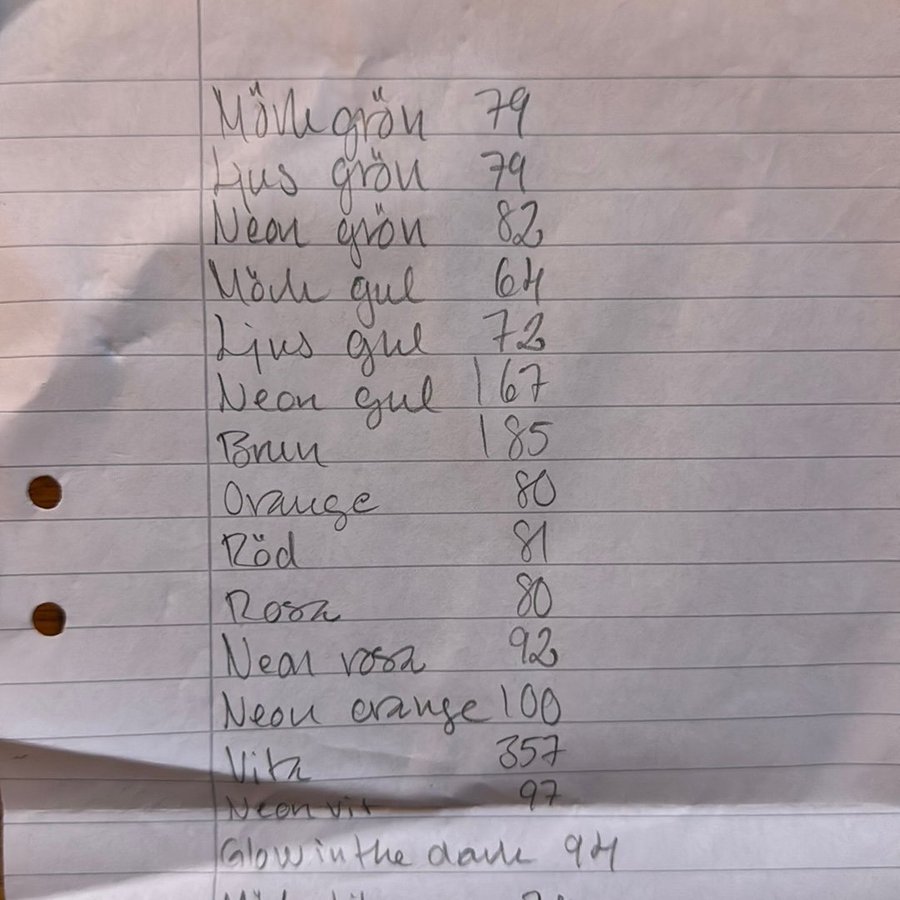 Mörk grön 79
Ljus grön 79
Neon grön 82
Mörk gul 64
Ljus gul 72
Neon gul 167
Brun 185
Orange 80
Röd 81
Rosa 80
Neon rosa 92
Neon orange 100
Vita 357
Neon vit 97
Glow in the dark 94